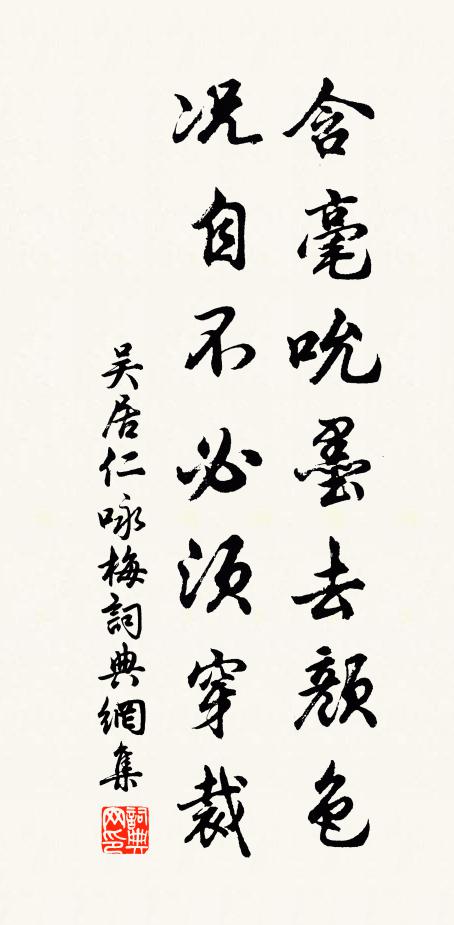 含毫吮墨去顔色
况自不必須穿裁
吴居仁咏梅詞典網集
詞典网印